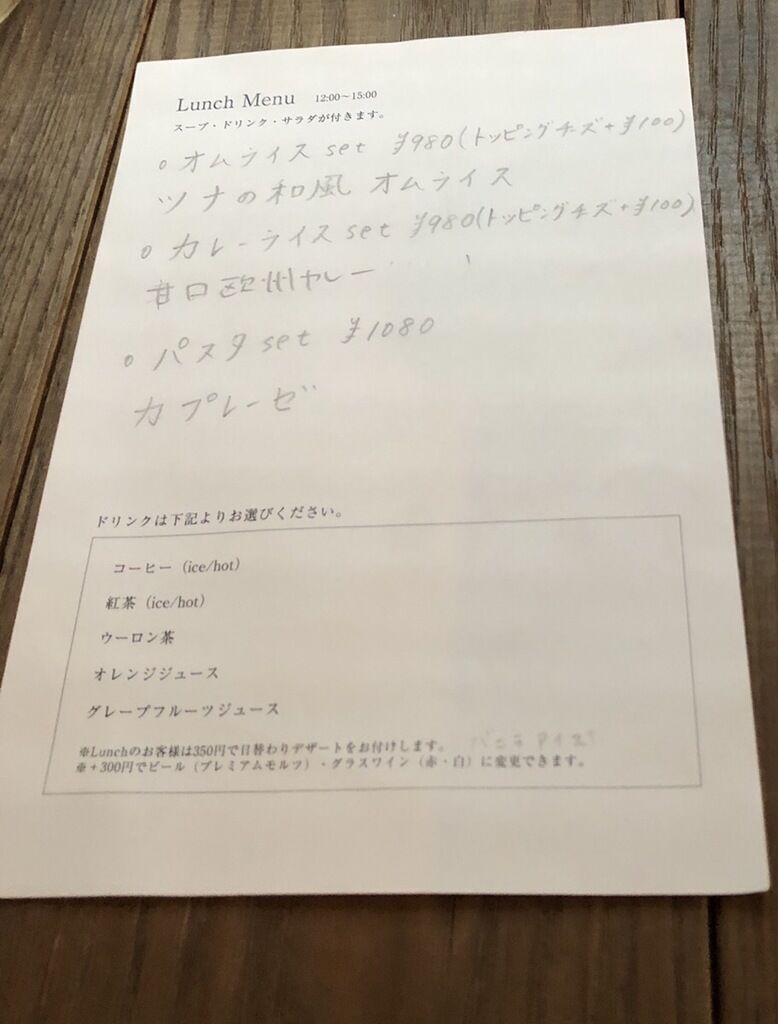 Lunch Menu 12:00～15:00
スープ・ドリンク・サラダが付きます。
○ オムライス set ¥980(トッピングチーズ+¥100)
ツナの和風 オムライス
○ カレーライス set ¥980(トッピングチーズ+¥100)
甘口欧州カレー
○ パスタ set ¥1080
カプレーゼ
ドリンクは下記よりお選びください。
コーヒー（ice/hot）
紅茶（ice/hot）
ウーロン茶
オレンジジュース
グレープフルーツジュース
※Lunchのお客様は350円で日替わりデザートをお付けします。 バニラアイス
※＋300円でビール（プレミアムモルツ）・グラスワイン（赤・白）に変更できます。